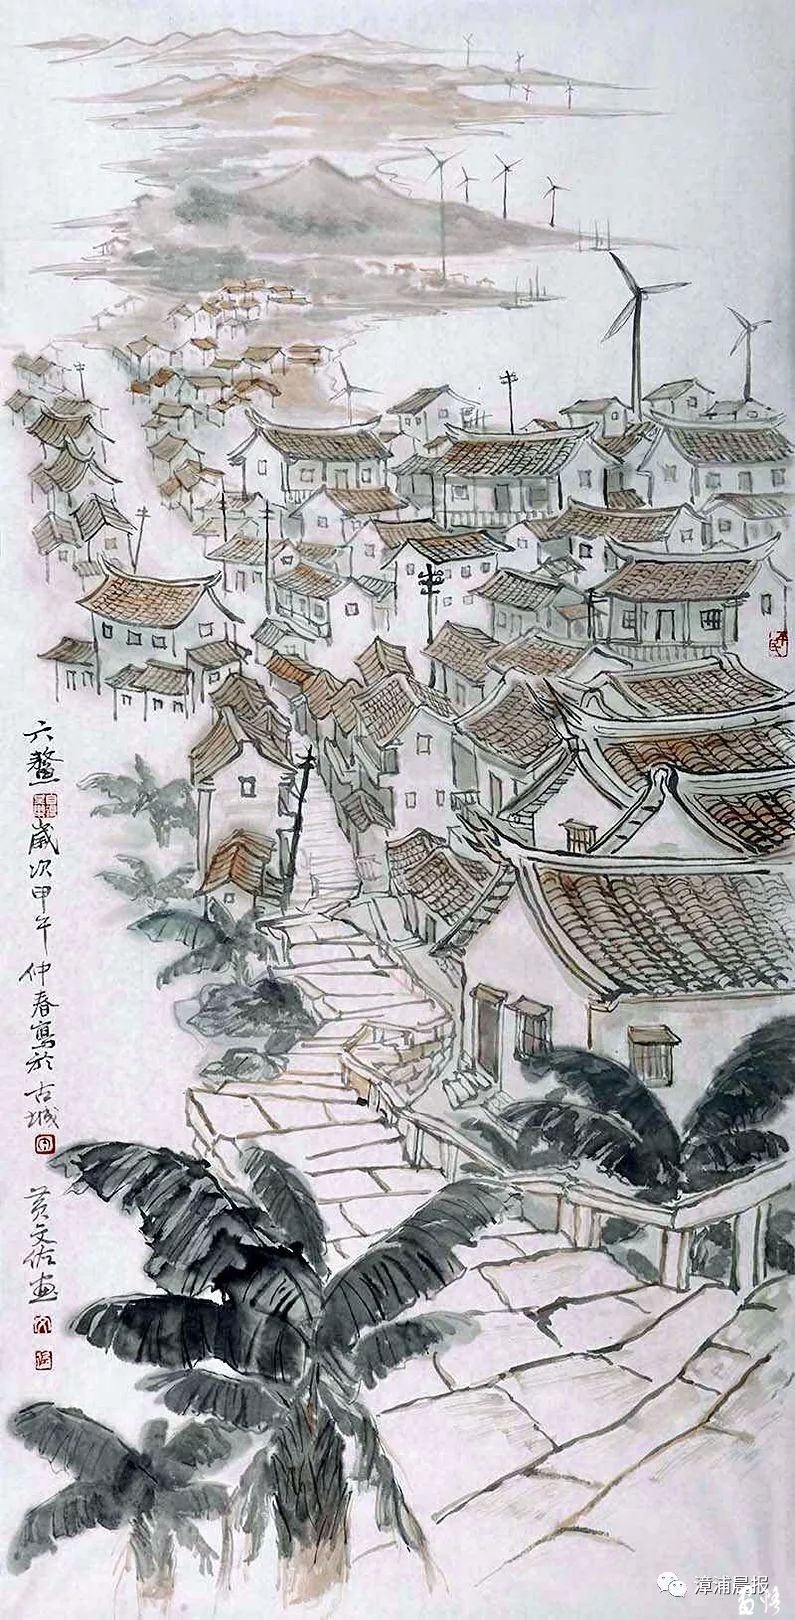 六鳌
歲次甲午仲春寫於古城
黄文佑画
漳浦晨报